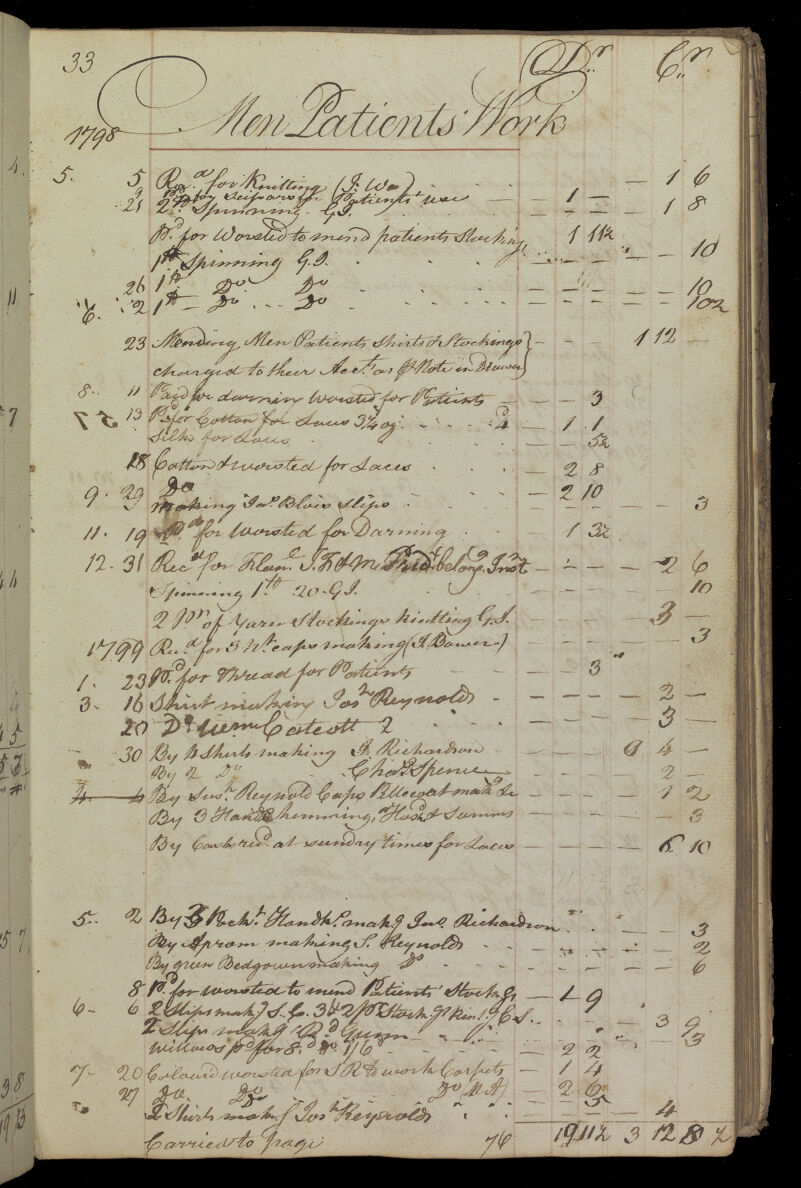 33 Dr. Cr.
Men Patients' Work
1798
5. 5 Recd. for Knitting (J: Wa) - 1 6
9 Pd. for Scissors for Patients' use - 1 -
21 2 lb Spinning G.I. - 1 8
Pd. for Worsted to mend patients Stockings 1 1½
1 lb Spinning G.I. 10
26 1 lb Do Do 10
6. 2 1 lb Do Do 10½
23 Mending Men Patients Shirts & Stockings } 1 12 -
charged to their Acct. as pr Note in Drawer }
8. 11 Paid for darning Worsted for Patients 3
13 Pd. for Cotton for Laces 3¾ oz 1 1
Silk for Laces 5½
18 Cotton & worsted for Laces 2 8
9. 29 Do 2 10
making Jas. Blois Slips 3
11. 19 Pd. for Worsted for Darning 1 3½
12. 31 Recd. for belong Inst 2 6
Spinning 1 lb 20 G.I. 10
2 pr. of Yarn Stockings knitting G.I. 3 -
1799 Recd. for 3 Nt. caps making (J. Bower) 3
1. 23 Pd. for Thread for Patients 3
3. 16 Shirt making Josh. Reynolds 2 -
20 Do Wm. Catcott 2 3 -
30 By 4 Shirts making J. Richardson 0 4 -
By 2 Do Chas. Spence 2 -
4. 4 By Jush. Reynold Caps Pillecoat makg. &c 1 2
By 3 Handk. hemming, & Summs 3
By Cash recd. at sundry times for Laces 6 10
5. 2 By 3 Pockt. Handkfs. makg. Jno. Richardson 3
By Apron making S. Reynolds 2
By green Bedgown making Do 6
8 Pd. for worsted to mend Patients' Stockgs. 1 9
6. 6 2 Slips makg. S.C. 3d & 2 pr Stockgs. C S.. 3 9
2 Slips makg. Rd. Gunn 3
Willows pd. for 8. d 80 1/6 2 2
7. 20 Colourd worsted for S R to work Carpets 1 4
27 Do Do Do M A) 2 6
5
2 Shirts makg. Josh. Reynolds 4
Carried to page 76 19 11½ 3 12 8 ½